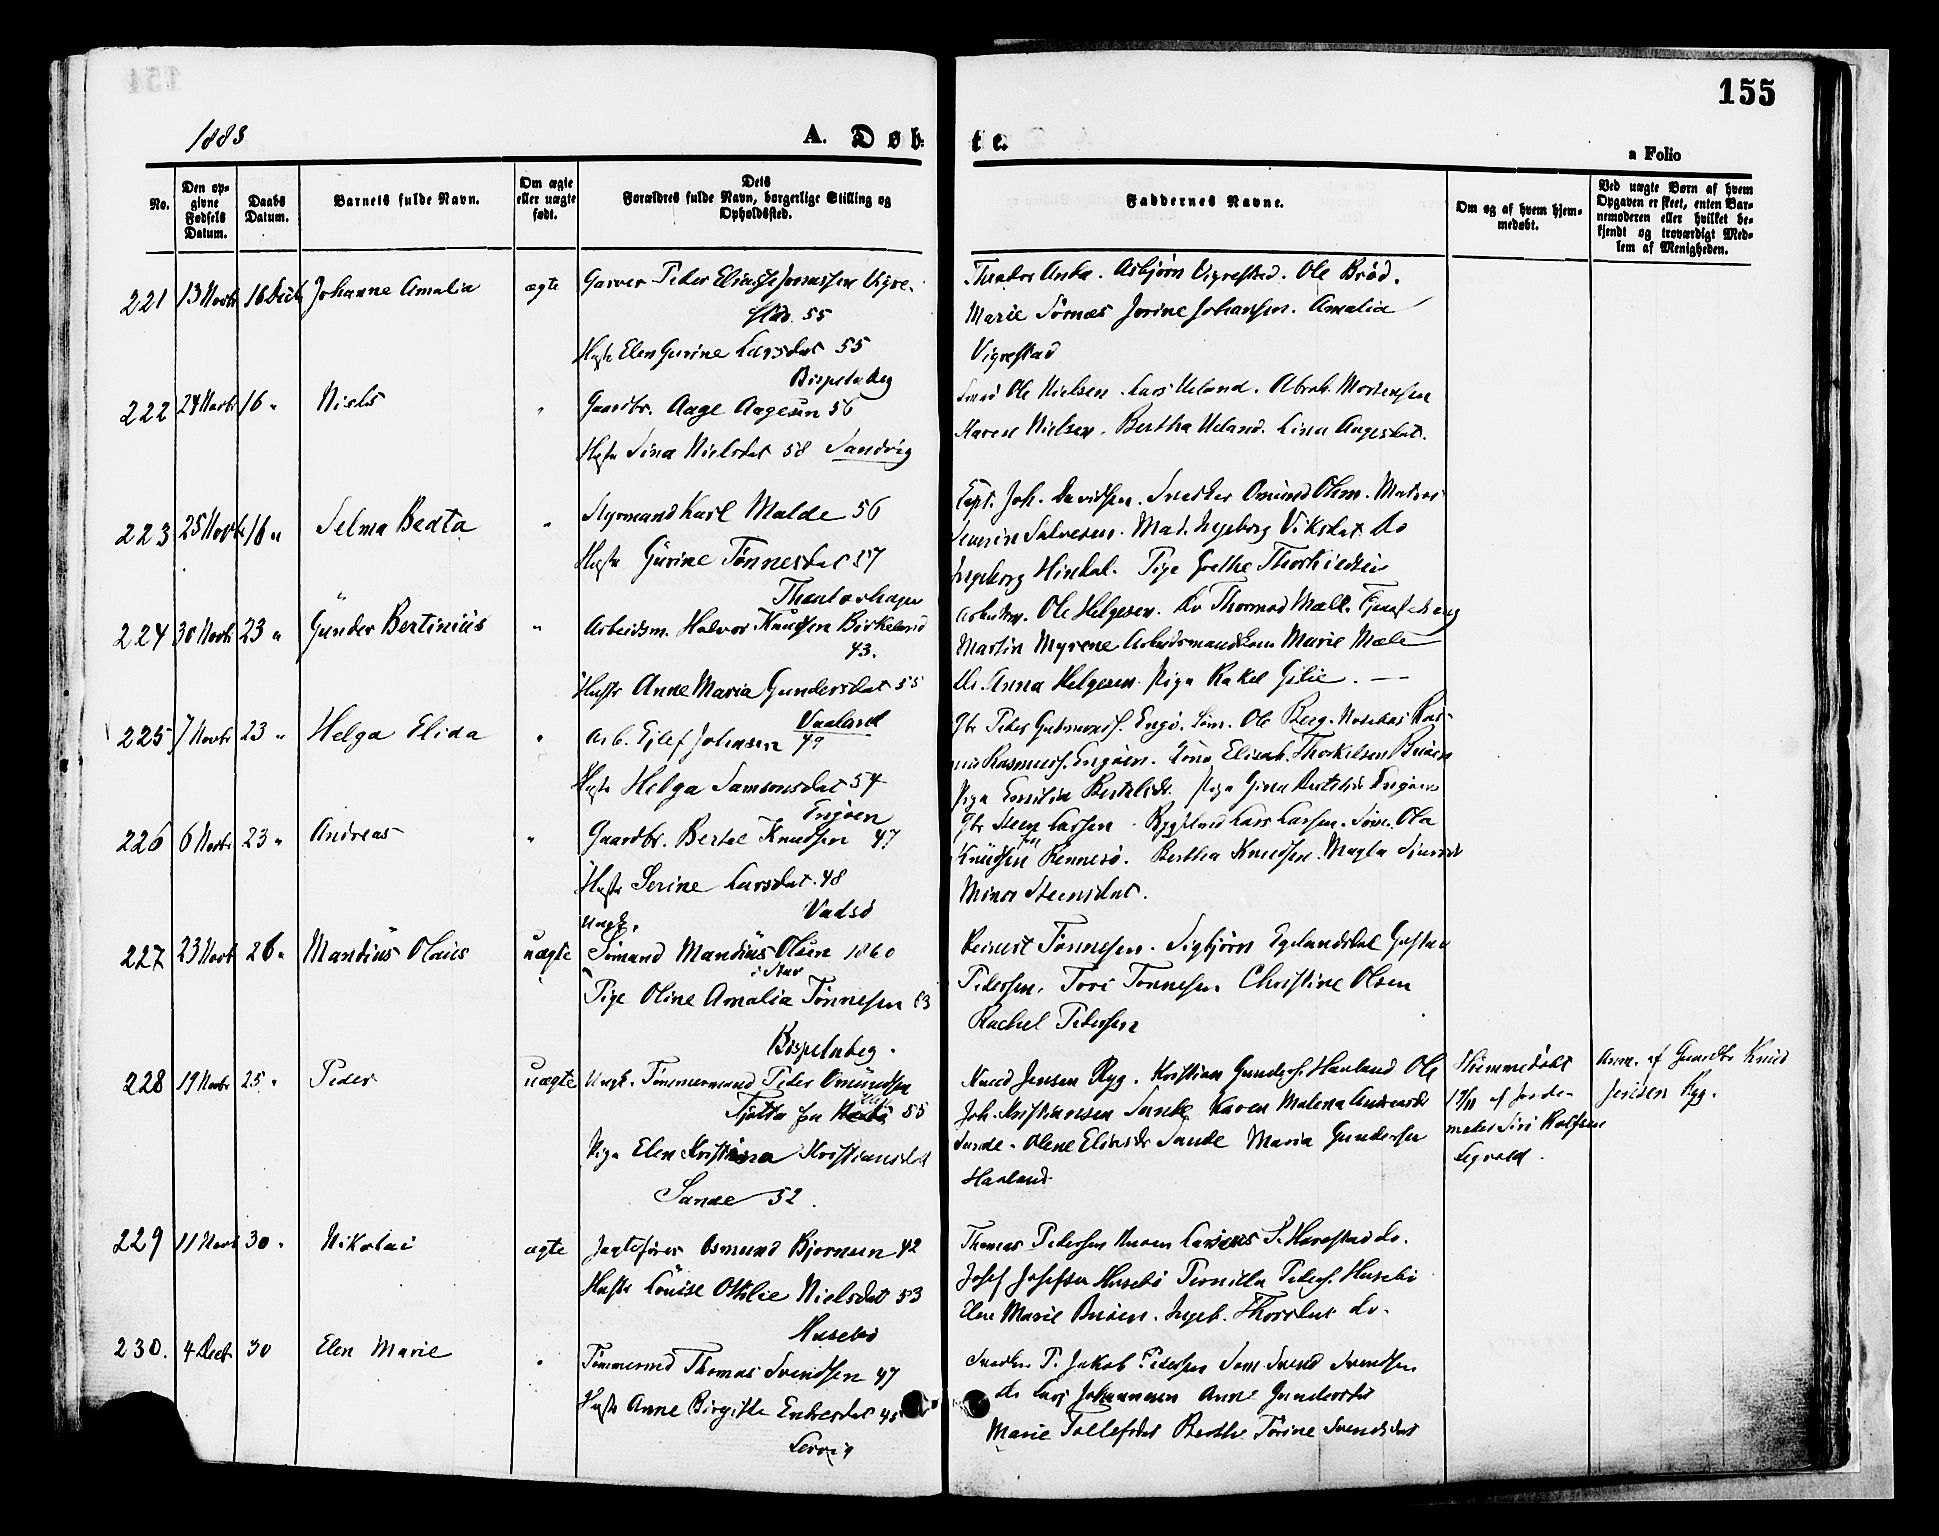 155
1883
A. Døb-
te.
a Folio
No.
Den op-
givne
Fødsels
Datum.
Daabs
Datum.
Barnets fulde Navn.
Om ægte
eller uægte
født.
Dets
Forældres fulde Navn, borgerlige Stilling og
Opholdssted.
Faddernes Navne.
Om og af hvem hjem-
medøbt.
Ved uægte Børn af hvem
Opgaven er skeet, enten Bar-
nemoderen eller hvilket be-
kjendt og troværdigt Med-
lem af Menigheden.
221 13 Novbr 16 Decb Johanne Amalia ægte Garver Peder Jonassen Vigre-
stad. 55
Hustr Elen Gurine Larsdat 55
Bispeladeg
Theodor Anda. Asbjørn Vigrestad. Ole Brød.
Marie Sørnæs Jorine Johansen. Amalia
Vigrestad
222 24 Novbr 16 " Niels " Gaardbr. Aage Aagesen 56
Hustr Sina Nielsdat 58 Sandvig
Ole Nielsen. Lars Ueland. Abrah. Mortensen
Karen Nielsen. Bertha Ueland. Lina Aagesdat.
223 25 Novbr 16 " Selma Beata " Styrmand Karl Malde 56
Hustr Gurine Tønnesdat 57
Capt. Joh. Davidsen. Snedker Omund Olsen. Matros
Severin Salvesen. Mad. Ingeborg Viksdat. do
Ingeborg Hindal. Pige Grethe
224 30 Novbr 23 " Gunder Bertinius " Arbeidsm. Halvor Knudsen Birkeland
43.
Hustr Anne Maria Gundersdat 55
Vaaland
Arbeidsm. Ole Helgesen. do Thormod Mæle.
Martin Myrene Arbeidsmandskone Marie Mæle
do. Anna Helgesen. Pige Rakel Gilje. —
225 7 Novbr 23 " Helga Elida " Arb. Ejlef Johnsen 49
Hustr Helga Samsonsdat 54
Engøen
Gbr Peder Gudmunds. Engø. Søm. Ole Berg. Matros Ras-
mus Rasmuss. Engøen. Kone Elisab. Thorkelsen Buøen
Pige Emilia Bertelsdr. Pige Gina Bertelsdr Engøen
226 6 Novbr 23 " Andreas " Gaardbr. Bertel Knudsen 47
Hustr Serine Larsdat. 48
Vadsø
Gbr Steen Larsen. Lars Larsen. Søm. Ole
Knudsen Rennesø. Bertha Knudsen. Magla
Mina Steensdat.
227 23 Novb 26 " Mandius Olaus uægte Ungk.
Sømand Mandius Olsen 1860
i Stav
Pige Oline Amalia Tønnesen 63
Bispeladeg.
Reinert Tønnesen. Sigbjørn Egelandsdal Gustav
Pedersen. Tori Tønnesen Christine Olsen
Rachel Pedersen
228 19 Novbr 25 " Peder uægte Ungk. Tømmermand Peder Omundsen
Tjøtta fra 55
Pige Elen Kristina Kristiansdat
Sande 52.
Knud Jensen Ryg. Kristian Gunders. Haaland Ole
Joh. Kristiansen Sande Karen Malena
Sande. Olene Eliasdr Sande Maria Gundersen
Haaland
Hjemmedøbt
19/11 af Jorde-
moder Siri Rolfsen
Anm. af Gaardbr Knud
Jensen Ryg.
229 11 Novb 30 " Nikolai ægte Jagtefører Osmund Bjørnsen 42
Hustr Louise Othilie Nielsdat 53
Husebø
Thomas Pedersen S. Harestad do.
Josef Josefsen Husebø Pernilla Peders. Husebø
Elen Marie Buøen. Ingeb. Thorsdat do.
230. 4 Decb. 30 Elen Marie " Tømmermd Thomas Svendsen 47
Hustr Anne Birgitte Endresdat 45
Lervig
Snedker P. Jakob Pedersen Søm. Svend Svendsen
do Lars Johannesen Anne Gundersdt
Marie Tollefsdat Berthe Torine Svendsdat